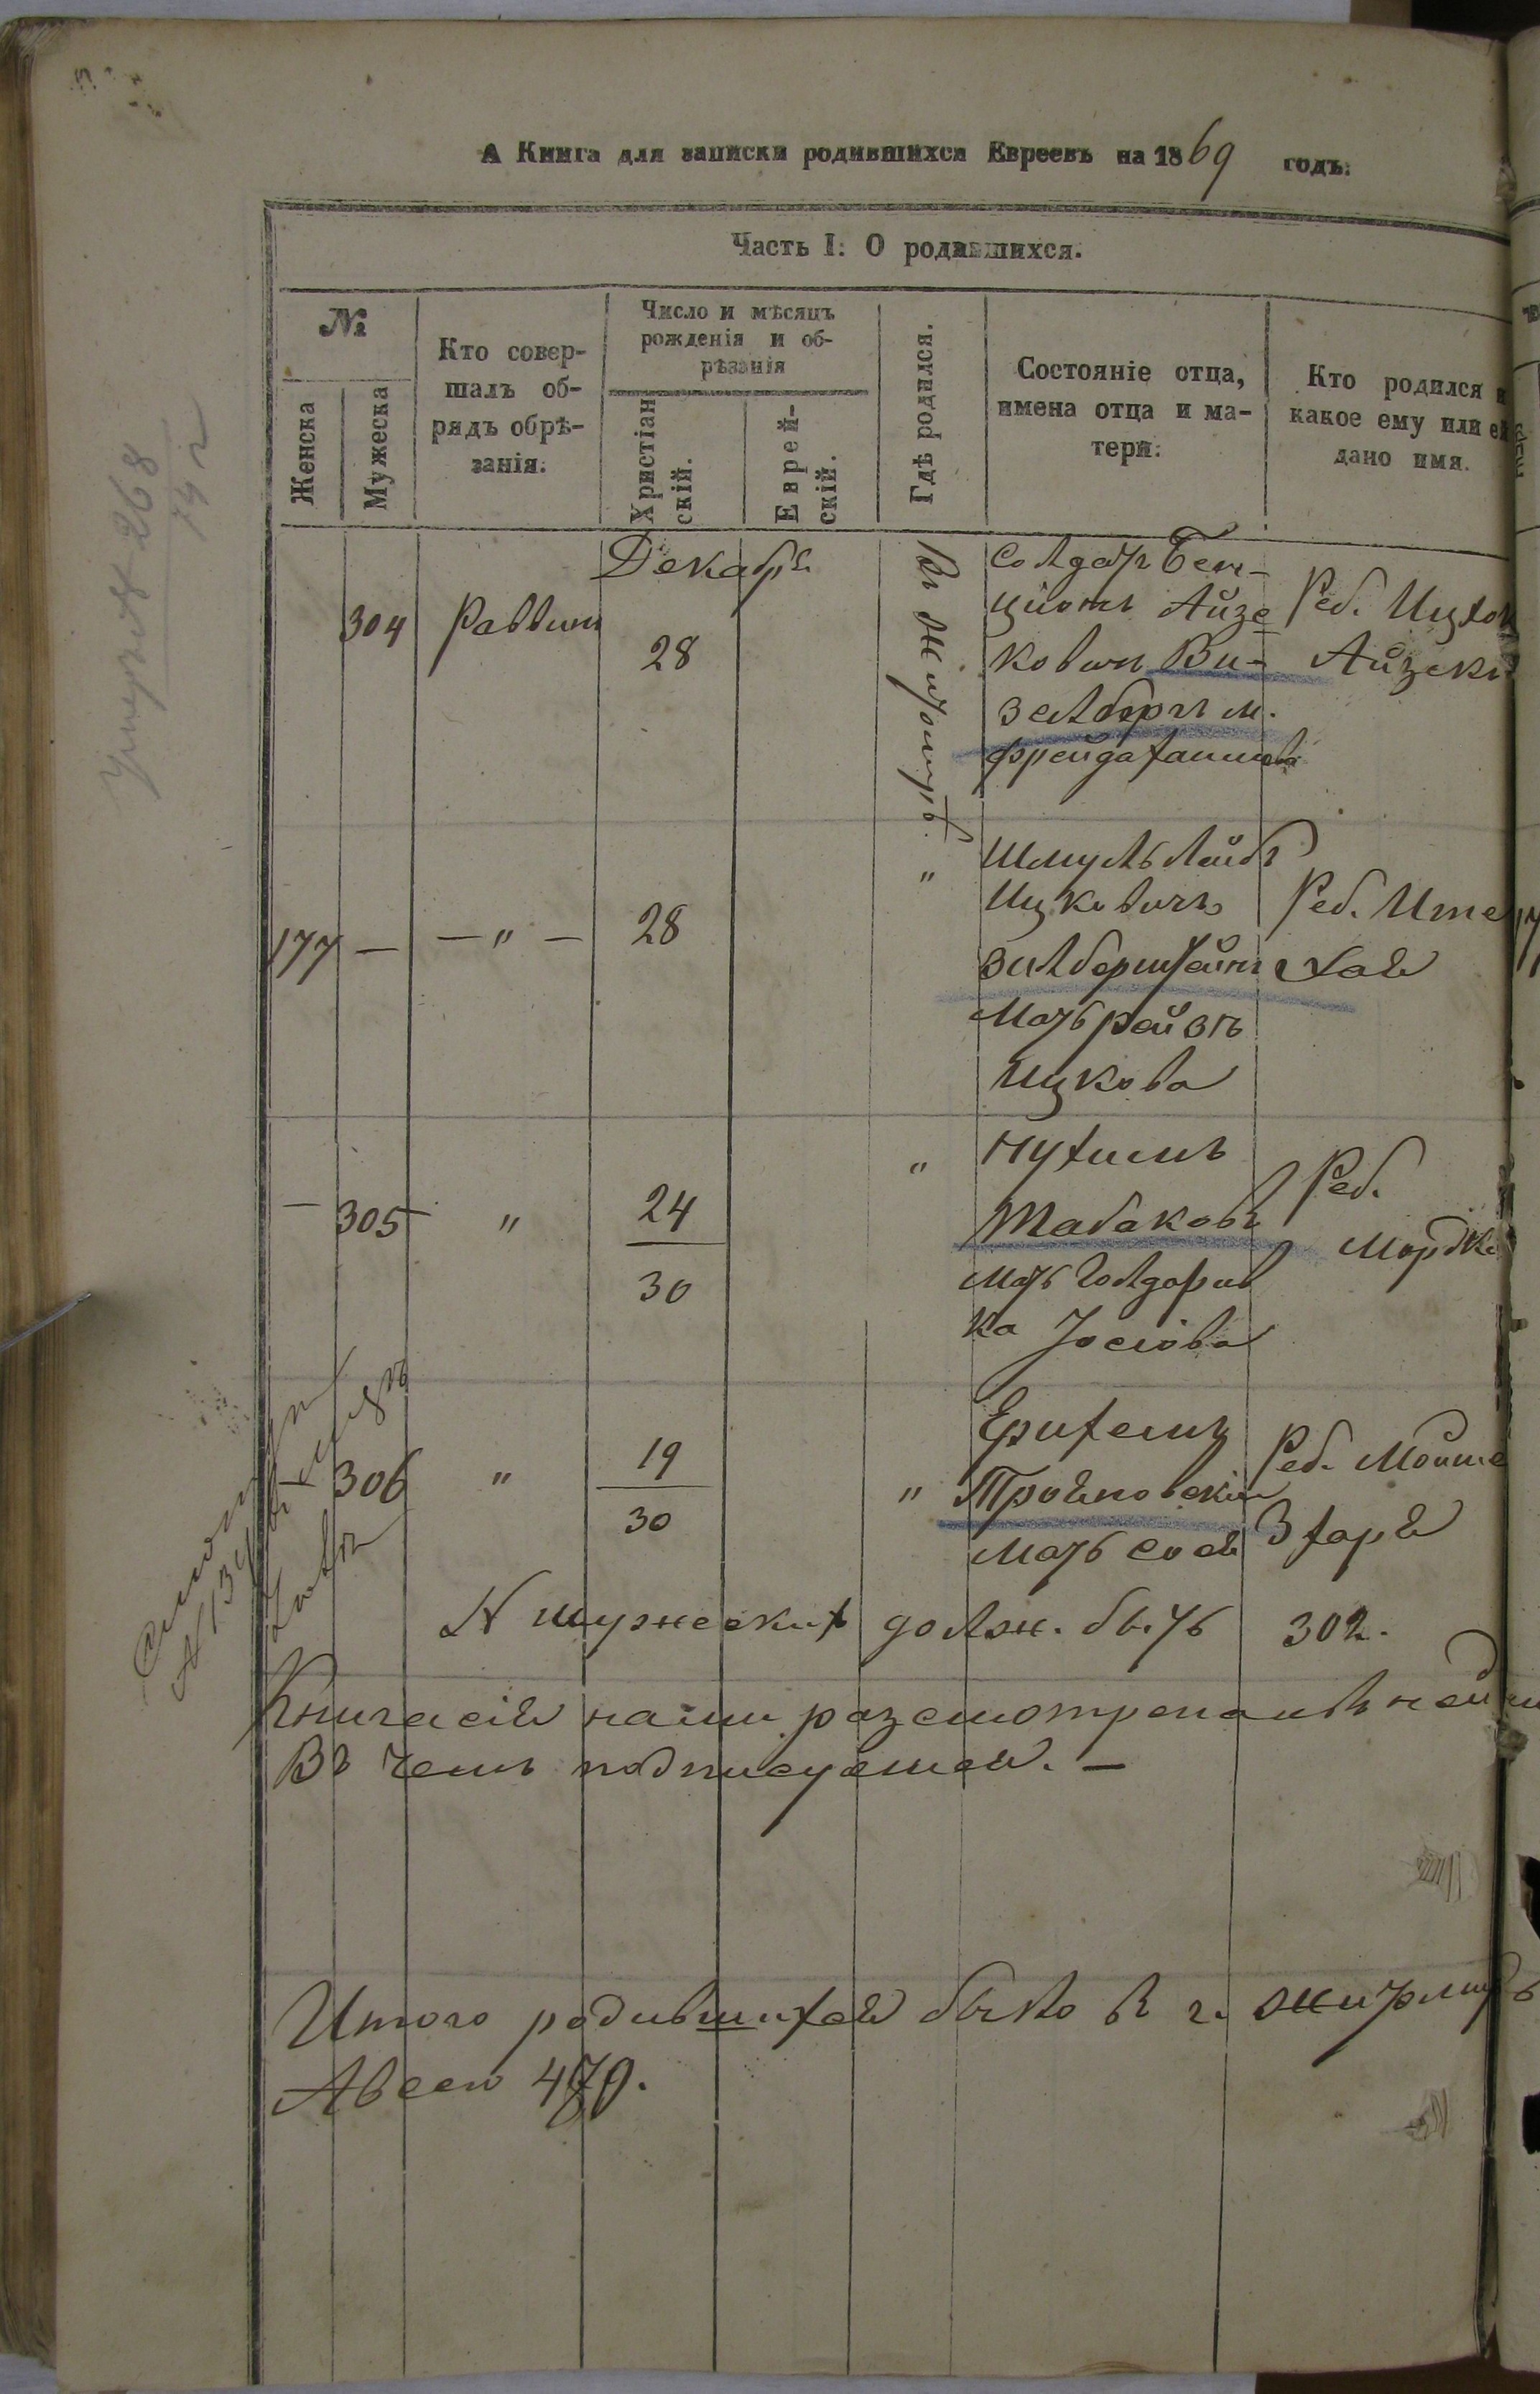 А Книга для записки родившихся Евреевъ на 1869 годъ.
Часть I: О родившихся.
№
Женска
Мужеска
Кто совер-
шалъ об-
рядъ обрѣ-
занія.
Число и мѣсяцъ
рожденія и об-
рѣзанія
Христіан
скій.
Еврей-
скій.
Гдѣ родился.
Состояніе отца,
имена отца и ма-
тери.
Кто родился и
какое ему или ей
дано имя.
Декабря
304
Раввинъ
28
Въ Житомирѣ.
Солдатъ Бен-
ціонъ Айзе
ковичъ Ви-
м.
Фрейда
Реб. Ицхокъ
Айзекъ
177 —
— " —
28
"
Шмуль Лейбъ
Ицковичъ
Зильберштейнъ
Мать Рейзя
Ицкова
Реб. Ите
Хая
— 305
"
24
30
"
Нухимъ
Табаковъ
Мать
ка Іосіова
Реб.
Мордко
306
"
19
30
"
Ерихемъ
Трояновскій
Мать Сося
Реб. Мойше
Зхарія
Умерших 268
74 г
№ мужеских должн. быть 302.
Книга сія нами разсмотрена
Въ чемъ подписуемся. —
Итого родившихся было въ г. Житомирѣ
Авсего 479.